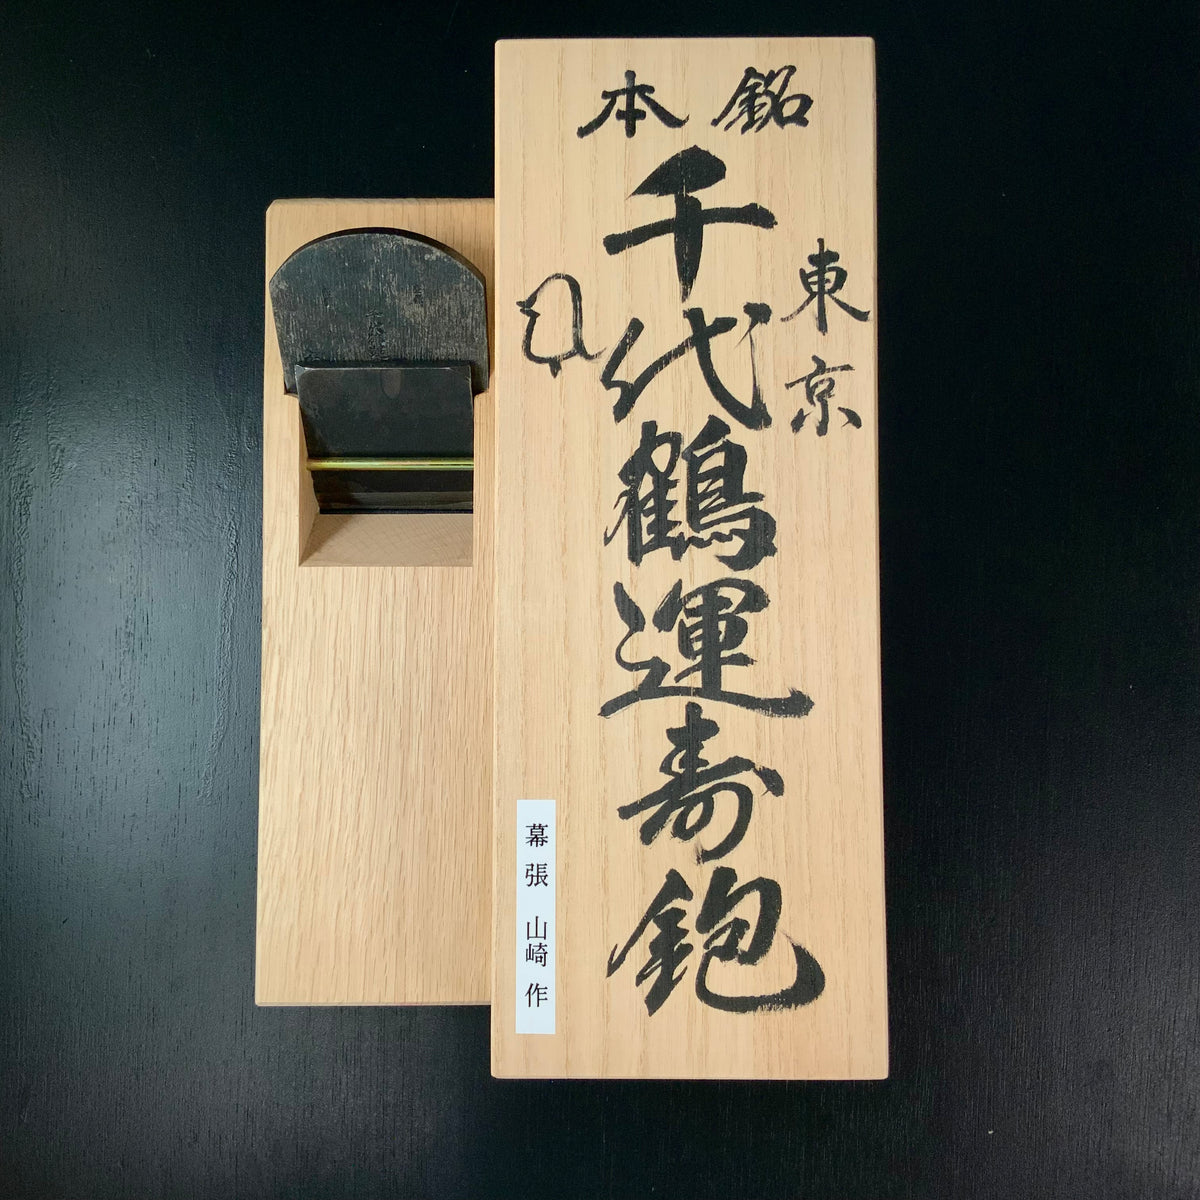 本銘
東京
千代鶴運寿鉋
幕張 山崎 作